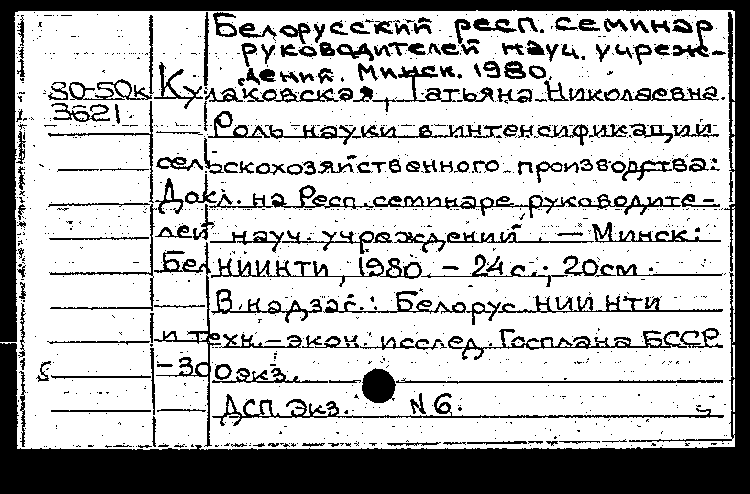 Белорусский респ. семинар
руководителей науч. учреж-
дений. Минск. 1980.
80-50к Кулаковская, Татьяна Николаевна.
3621
Роль науки в интенсификации
сельскохозяйственного производства:
Докл. на Респ. семинаре руководите-
лей науч. учреждений. — Минск:
БелНИИНТИ, 1980. - 24 с.; 20см.
В надзаг.: Белорус. НИИ НТИ
и техн.-экон. исслед. Госплана БССР
-300экз.
ДСП. Экз. N 6.